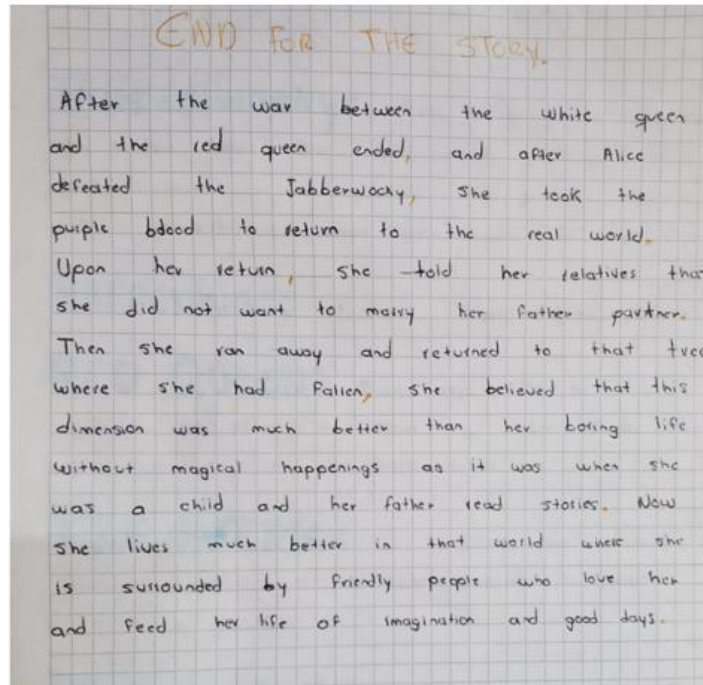 END FOR THE STORY.
After the war between the white queen
and the red queen ended, and after Alice
defeated the Jabberwocky, she took the
purple bdood to return to the real world.
Upon her return, she told her relatives that
she did not want to marry her father partner.
Then she ran away and returned to that tree
where she had fallen, she believed that this
dimension was much better than her boring life
without magical happenings as it was when she
was a child and her father read stories. Now
she lives much better in that world where she
is surrounded by friendly people who love her
and feed her life of imagination and good days.